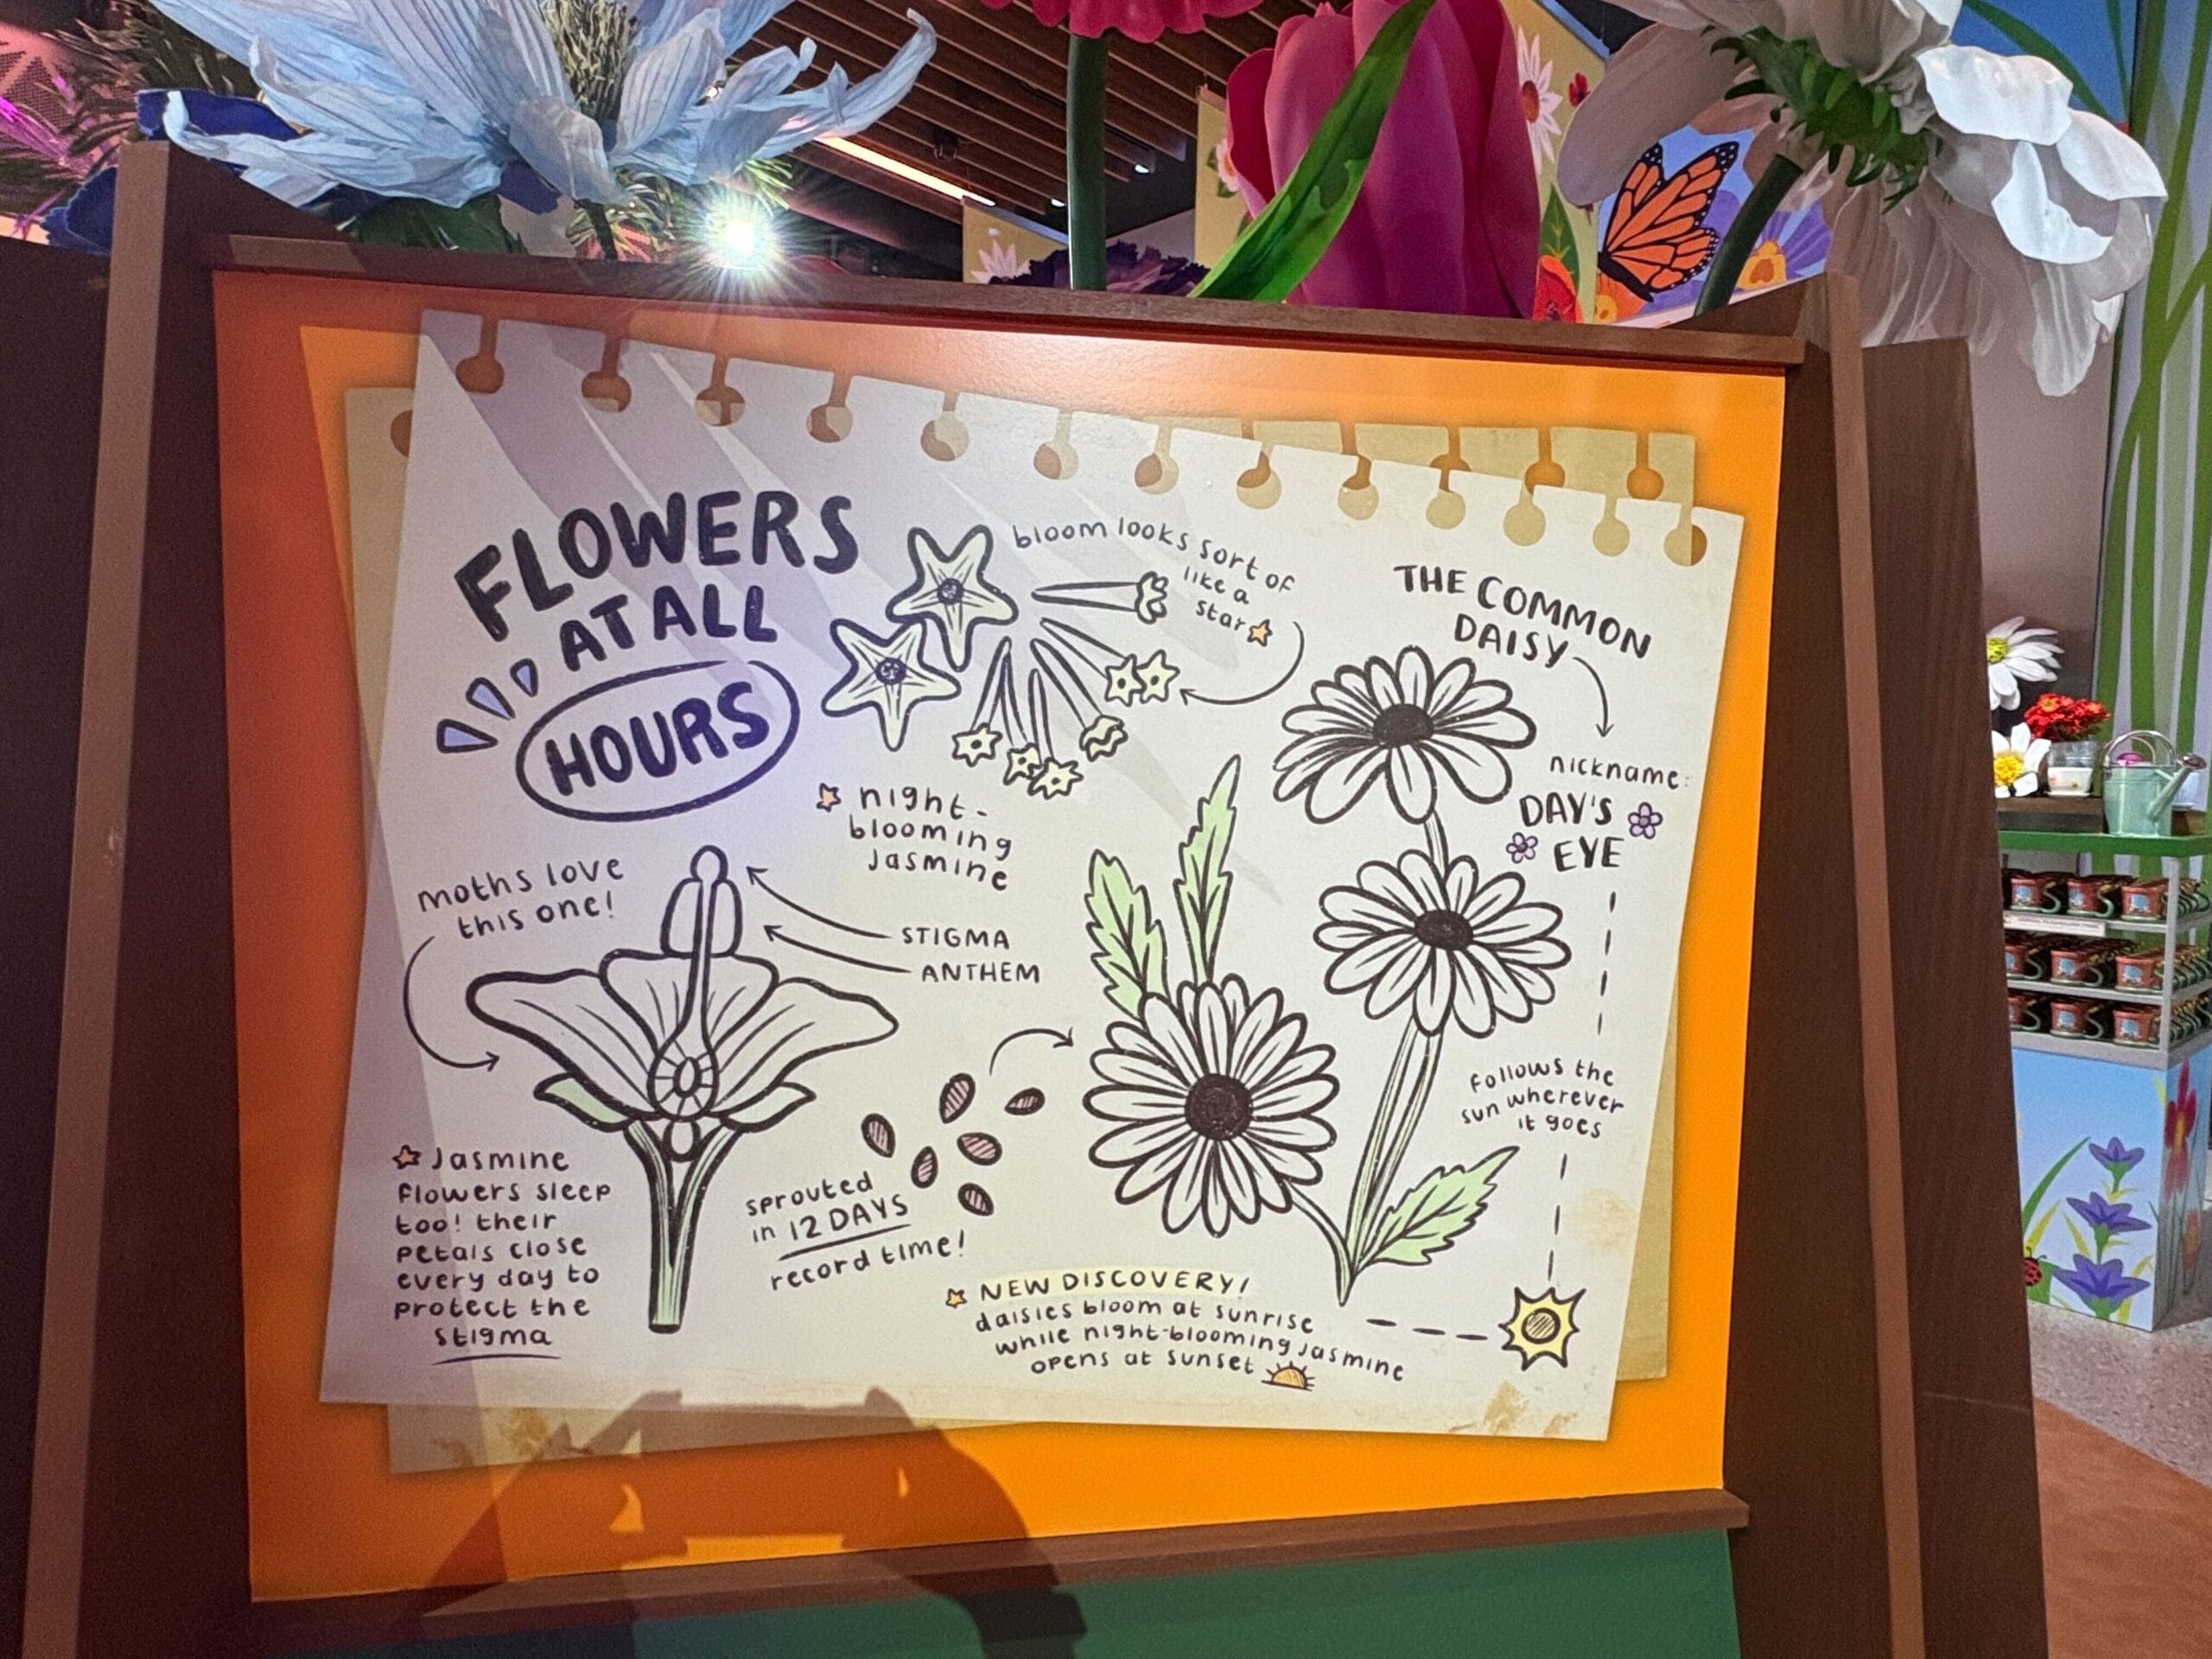 FLOWERS
AT ALL
HOURS
bloom looks sort of
like a
star
night-
blooming
Jasmine
THE COMMON
DAISY
nickname:
DAY'S
EYE
follows the
sun wherever
it goes
moths love
this one!
STIGMA
ANTHEM
Jasmine
flowers sleep
too! their
petals close
every day to
protect the
stigma
sprouted
in 12 DAYS
record time!
NEW DISCOVERY!
daisies bloom at sunrise
while night-blooming jasmine
opens at sunset